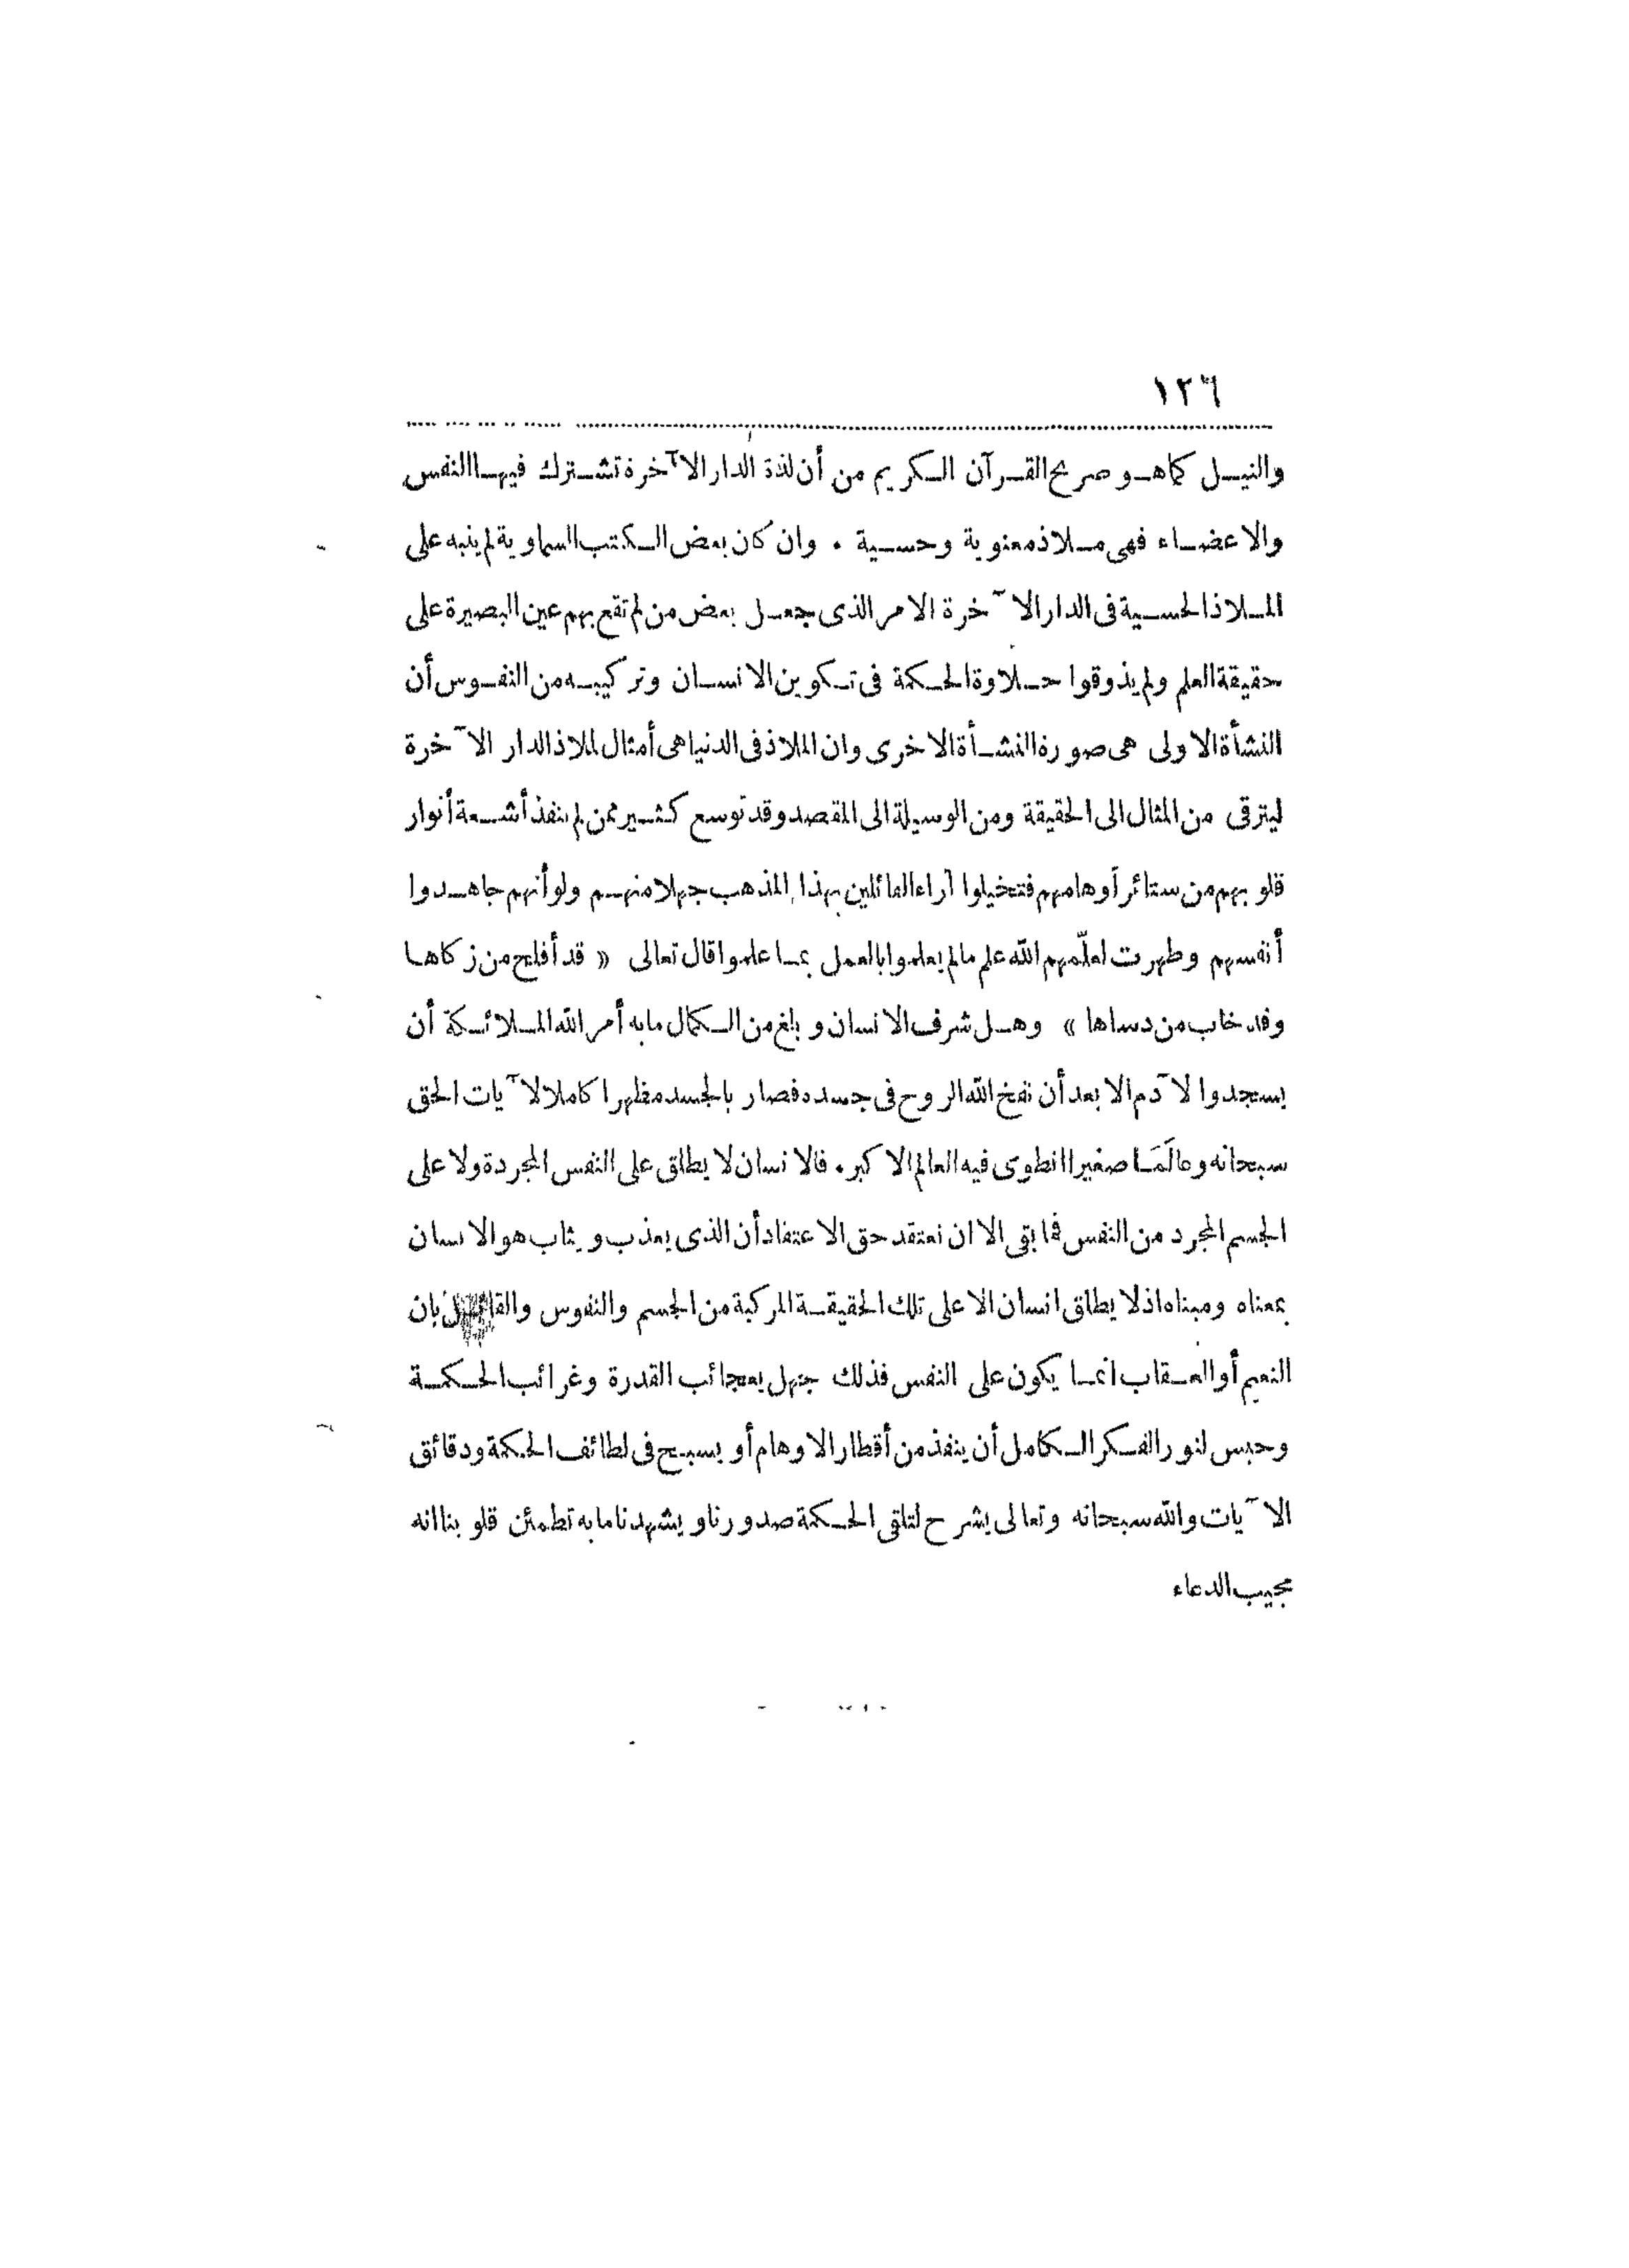 ١٢٦
والنيل كما هو صريح القرآن الكريم من أن لذة الدار الآخرة تشترك فيها النفس
والاعضاء فهى ملاذ معنوية وحسية . وان كان بعض الكتب السماوية لم ينبه على
الملاذ الحسية فى الدار الآخرة الامر الذى جعل بعض من لم تقع بهم عين البصيرة على
حقيقة العلم ولم يذوقوا حلاوة الحكمة فى تكوين الانسان وتركيبه من النفوس أن
النشأة الاولى هى صورة النشأة الاخرى وان الملاذ فى الدنيا هى أمثال لملاذ الدار الآخرة
ليترقى من المثال الى الحقيقة ومن الوسيلة الى المقصد وقد توسع كثير ممن لم ينفذ أشعة أنوار
قلوبهم من ستائر أوهامهم فتخيلوا آراء القائلين بهذا المذهب جهلا منهم ولو أنهم جاهدوا
أنفسهم وطهرت لعلّمهم الله علم ما لم يعلموا بالعمل بما علموا قال تعالى « قد أفلح من زكاها
وقد خاب من دساها » وهل شرف الانسان وبلغ من الكمال ما به أمر الله الملائكة أن
يسجدوا لآدم الا بعد أن نفخ الله الروح فى جسده فصار بالجسد مظهرا كاملا لآيات الحق
سبحانه وعالَمَا صغيرا انطوى فيه العالم الاكبر . فالانسان لا يطلق على النفس المجردة ولا على
الجسم المجرد من النفس فما بقى الا ان نعتقد حق الاعتقاد أن الذى يعذب ويثاب هو الانسان
بمعناه ومبناه اذ لا يطلق انسان الا على تلك الحقيقة المركبة من الجسم والنفوس بان
النعيم أو العقاب انما يكون على النفس فذلك جهل بعجائب القدرة وغرائب الحكمة
وحبس لنور الفكر الكامل أن ينفذ من أقطار الاوهام أو يسبح فى لطائف الحكمة ودقائق
الآيات والله سبحانه وتعالى يشرح لتلقى الحكمة صدورنا ويشهدنا ما به تطمئن قلوبنا انه
مجيب الدعاء